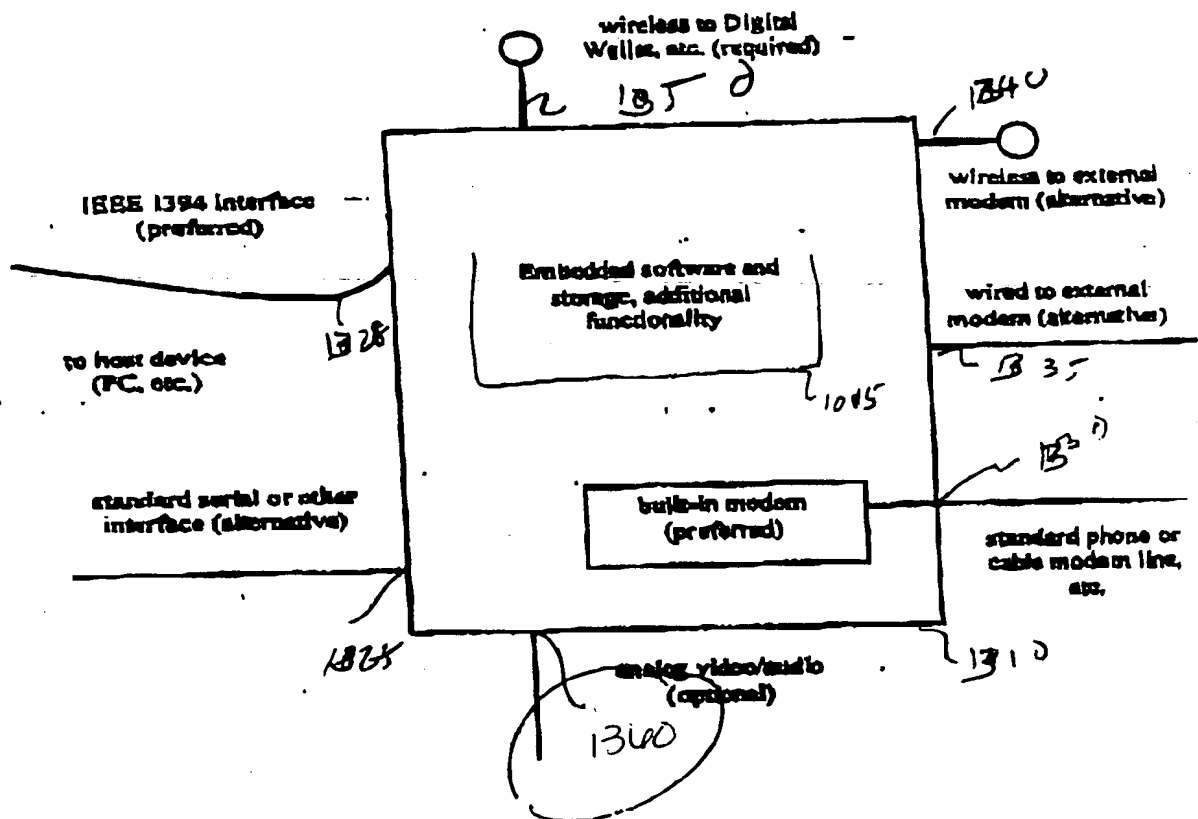 wireless to Digital
Wallet, etc. (required)
1340
wireless to external
modem (alternative)
IEEE 1394 interface
(preferred)
Embedded software and
storage, additional
functionality
wired to external
modem (alternative)
1328
to host device
(PC, etc.)
1335
standard serial or other
interface (alternative)
built-in modem
(preferred)
standard phone or
cable modem line,
etc.
1310
analog video/audio
(optional)
1360